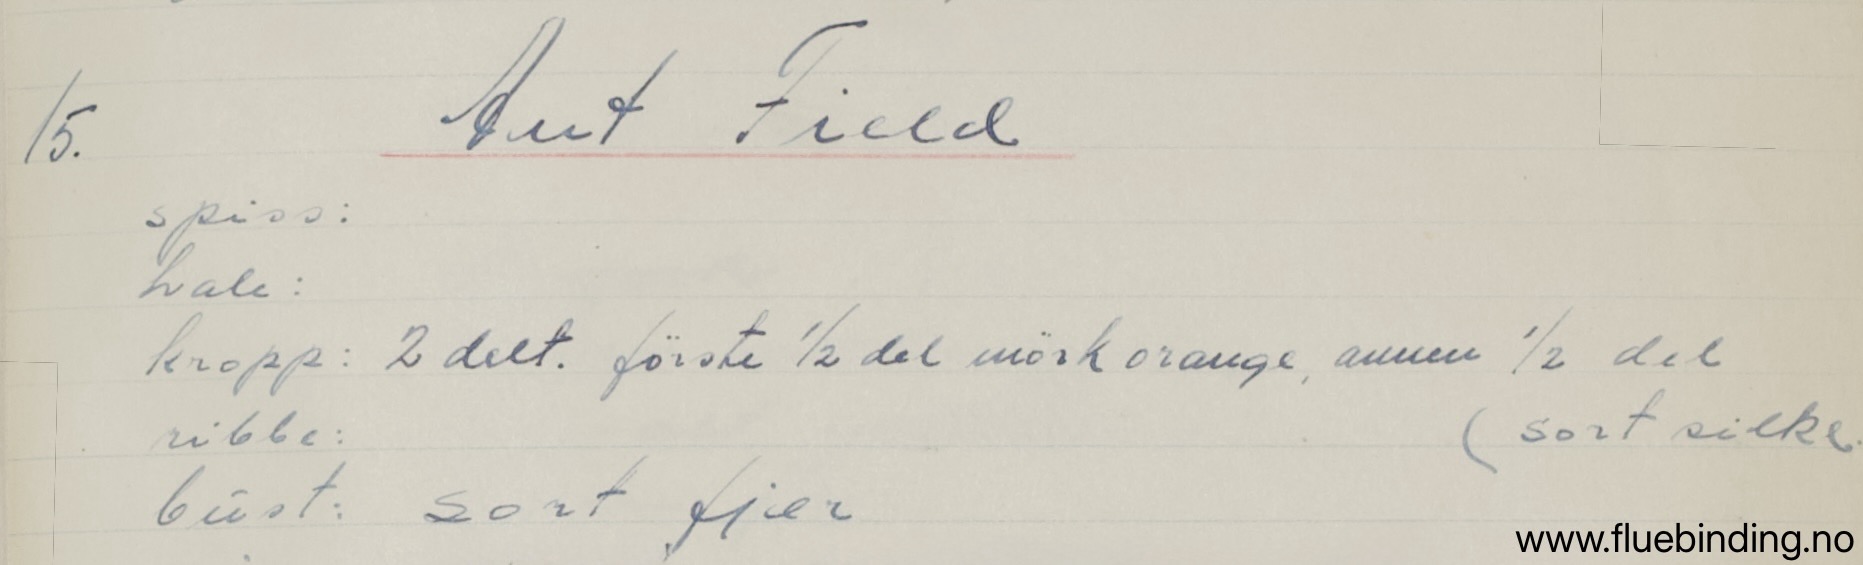 15. Ant Field
spiss:
hale:
kropp: 2 delt. förste 1/2 del mörk orange, annen 1/2 del
ribbe: (sort silke.
büst: sort fjer
www.fluebinding.no